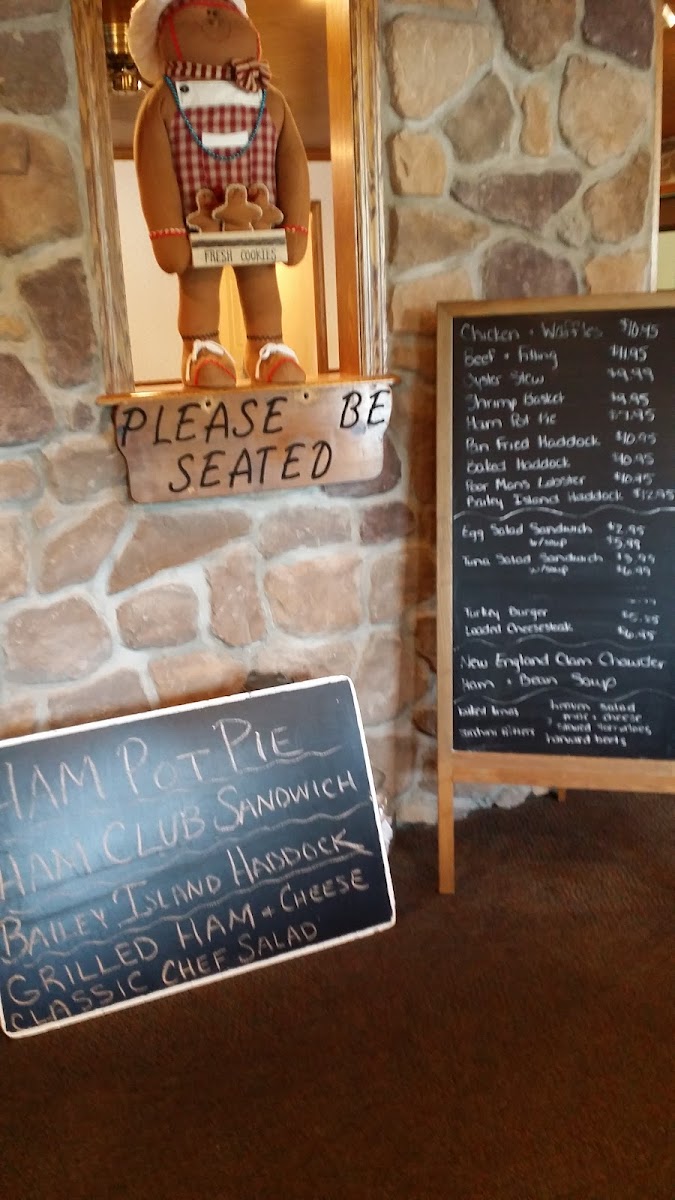 FRESH COOKIES
PLEASE BE
SEATED
Chicken + Waffles $10.95
Beef + Filling $11.95
Oyster Stew $9.99
Shrimp Basket $9.95
Ham Pot Pie
Pan Fried Haddock $10.95
Baked Haddock $10.95
Poor Mans Lobster $10.95
Bailey Island Haddock $12.95
Egg Salad Sandwich $2.95
w/soup $5.99
Tuna Salad Sandwich $3.99
w/soup $6.99
Turkey Burger
Loaded Cheesesteak $6.95
New England Clam Chowder
Ham + Bean Soup
salad
mac + cheese
stewed tomatoes
harvard beets
HAM POT PIE
HAM CLUB SANDWICH
BAILEY ISLAND HADDOCK
GRILLED HAM + CHEESE
CLASSIC CHEF SALAD